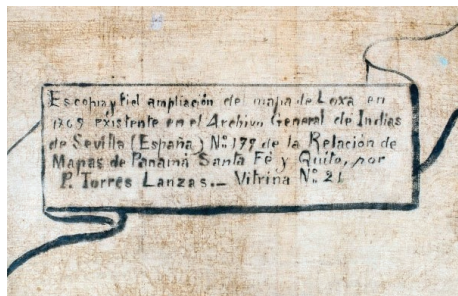 Es copia y fiel ampliación del mapa de Loxa en
1769 existente en el Archivo General de Indias
de Sevilla (España) Nº 179 de la Relación de
Mapas de Panamá Santa Fé y Quito, por
P. Torres Lanzas._ Vitrina Nº 21